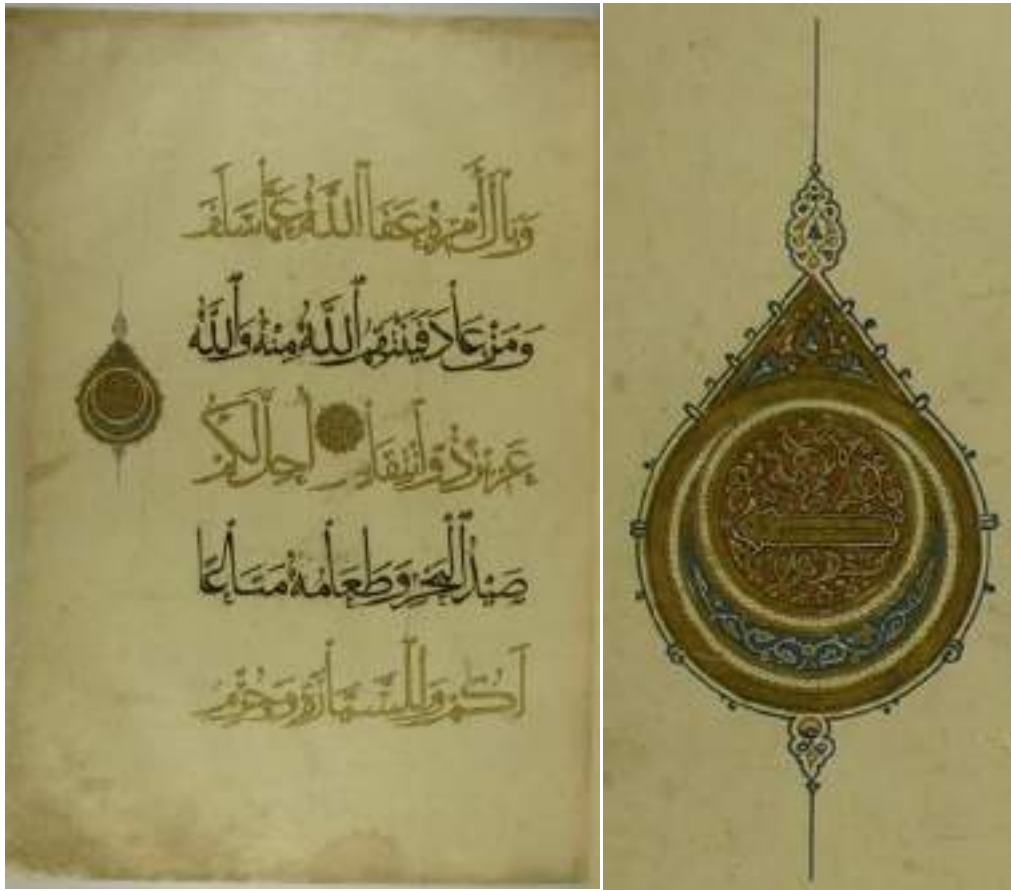 وَبَالَ أَمْرِهِ عَفَا اللَّهُ عَمَّا سَلَفَ
وَمَنْ عَادَ فَيَنْتَقِمُ اللَّهُ مِنْهُ وَاللَّهُ
عَزِيزٌ ذُو انْتِقَامٍ أُحِلَّ لَكُمْ
صَيْدُ الْبَحْرِ وَطَعَامُهُ مَتَاعًا
لَكُمْ وَلِلسَّيَّارَةِ وَحُرِّمَ